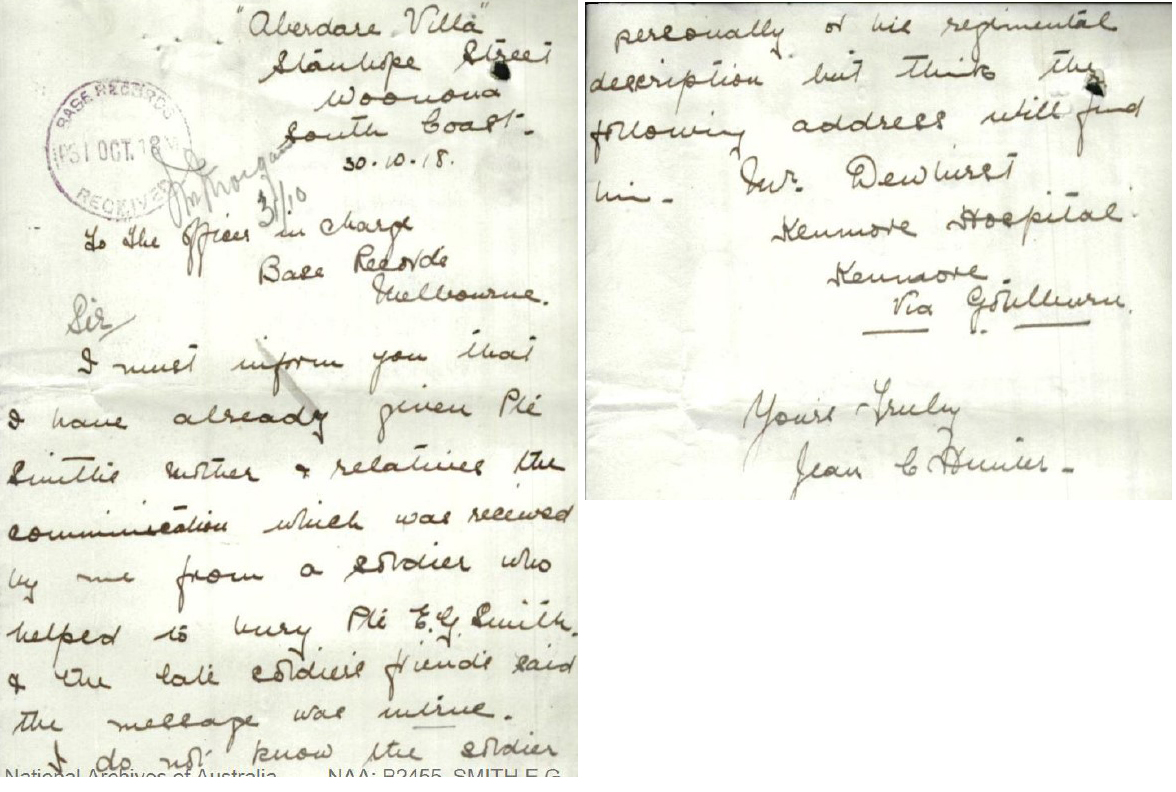 "Aberdare Villa"
Stanhope Street
Woonona
South Coast.
30.10.18.
BASE RECORDS
31 OCT. 18
RECEIVED
31/10
To the Officer in charge
Base Records
Melbourne.
Sir/
I must inform you that
I have already given Pte
Smith's mother & relatives the
communication which was received
by me from a soldier who
helped to bury Pte E.G. Smith.
& the late soldier's friends said
the message was untrue.
I do not know the soldier
National Archives of Australia NAA: B2455, SMITH E G
personally or his regimental
description but think the
following address will find
him. Mr. Dewhirst
Kenmore Hospital.
Kenmore.
Via Goulburn.
Yours Truly
Jean C Hunter.